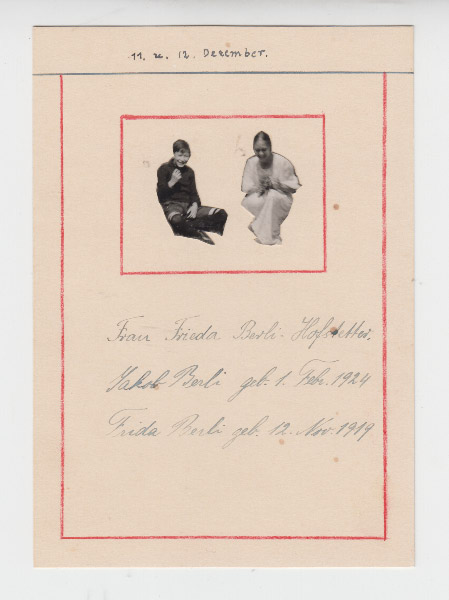 11. u. 12. Dezember.
Frau Frieda Berli-Hofstetter.
Jakob Berli geb. 1. Febr. 1924
Frida Berli geb. 12. Nov. 1919